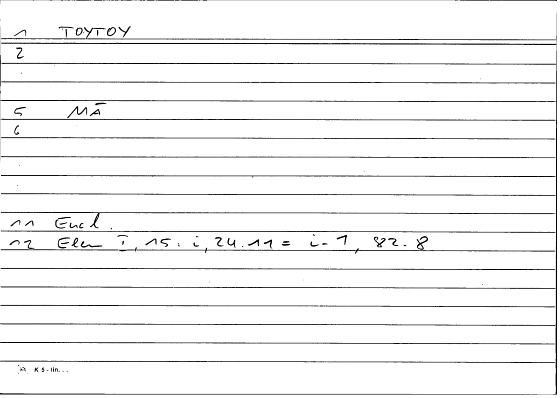 1 ΤΟΥΤΟΥ
2
5 ΜᾹ
6
11 Eucl.
12 Elem I, 15. i, 24.11 = i-1, 82.8
K 5 - lin...